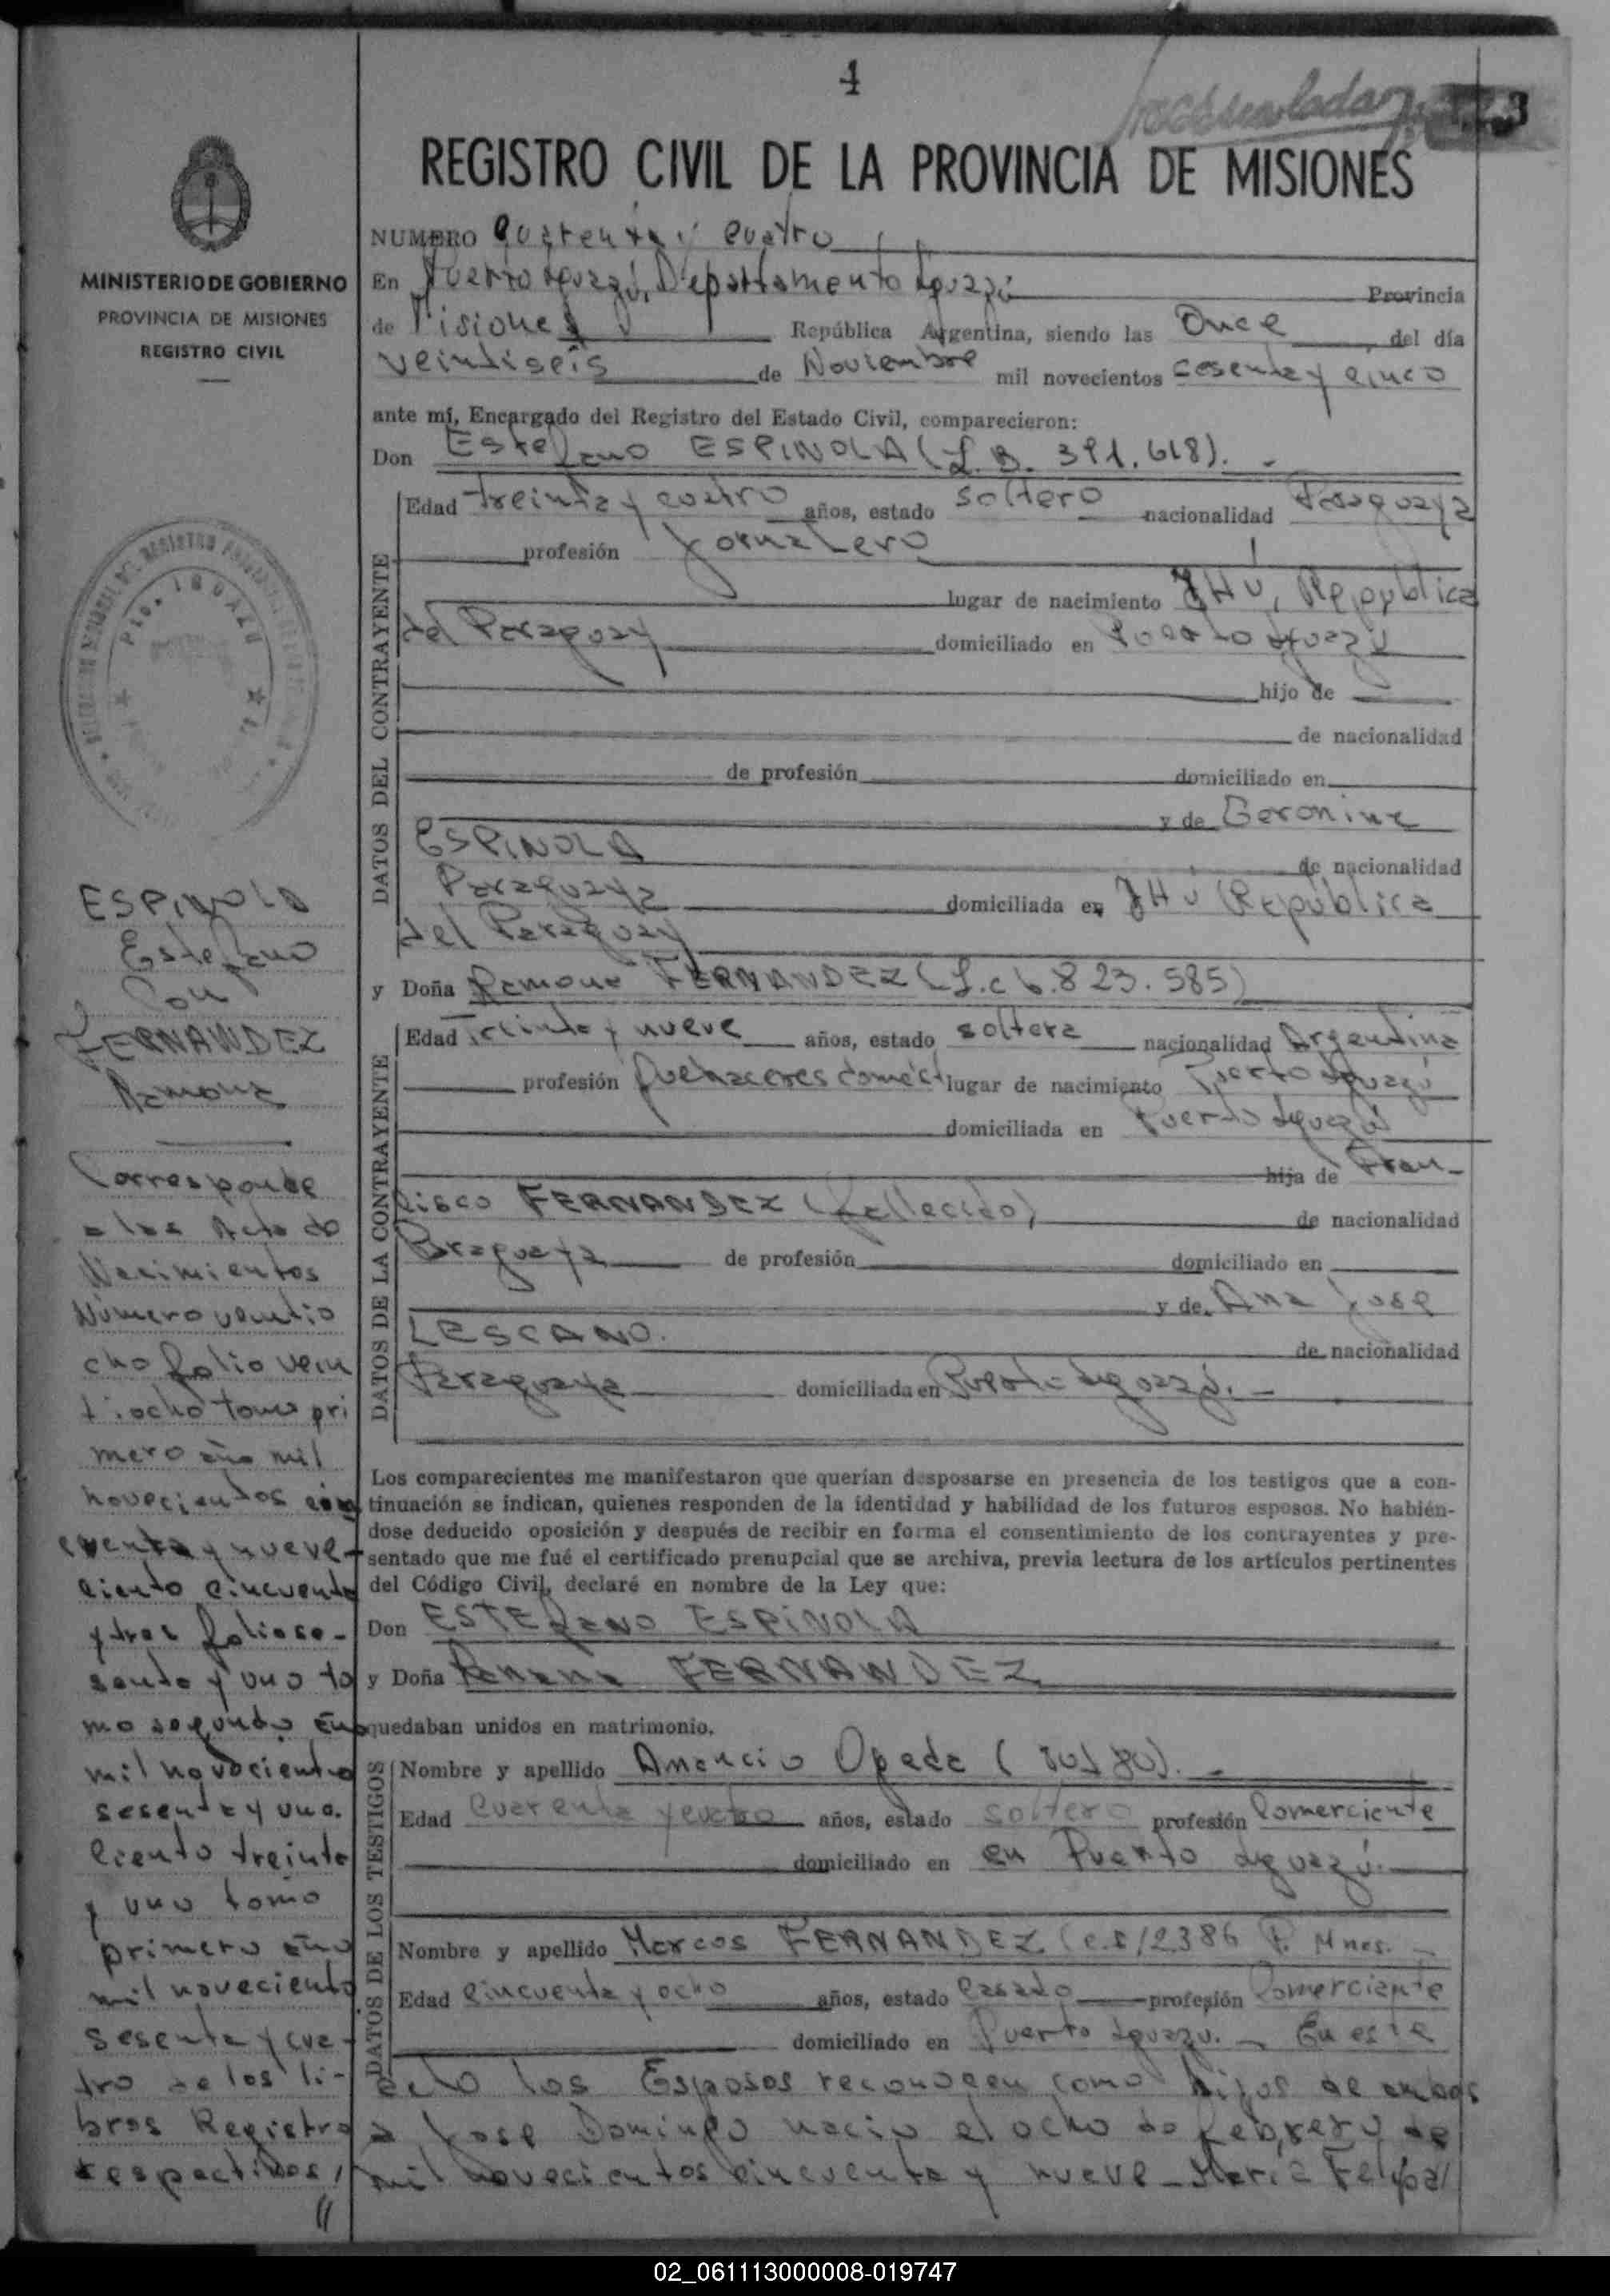 4
REGISTRO CIVIL DE LA PROVINCIA DE MISIONES
MINISTERIO DE GOBIERNO
PROVINCIA DE MISIONES
REGISTRO CIVIL
NUMERO Quarenta y cuatro
En Puerto Iguazú, Departamento Iguazú Provincia
de Misiones República Argentina, siendo las Once del día
veintiseis de Noviembre mil novecientos cesenta y cinco
ante mí, Encargado del Registro del Estado Civil, comparecieron:
Don Estefano ESPINOLA (L.B. 391.618). -
DATOS DEL CONTRAYENTE
Edad treinta y cuatro años, estado soltero nacionalidad Paraguaya
profesión Jornalero
lugar de nacimiento JHU, Republica
del Paraguay domiciliado en Puerto Iguazú
hijo de
de nacionalidad
de profesión domiciliado en
y de Geronima
ESPINOLA de nacionalidad
Paraguaya domiciliada en JHU Republica
del Paraguay
y Doña Ramona FERNANDEZ (L.c 6.823.585)
DATOS DE LA CONTRAYENTE
Edad Treinta y nueve años, estado soltera nacionalidad Argentina
profesión Quehaceres domést lugar de nacimiento Puerto Iguazú
domiciliada en Puerto Iguazú
hija de Fran-
cisco FERNANDEZ (fallecido) de nacionalidad
Paraguaya de profesión domiciliado en
y de Ana Jose
LESCANO. de nacionalidad
Paraguaya domiciliada en Puerto Iguazú. -
Los comparecientes me manifestaron que querían desposarse en presencia de los testigos que a con-
tinuación se indican, quienes responden de la identidad y habilidad de los futuros esposos. No habién-
dose deducido oposición y después de recibir en forma el consentimiento de los contrayentes y pre-
sentado que me fué el certificado prenupcial que se archiva, previa lectura de los artículos pertinentes
del Código Civil, declaré en nombre de la Ley que:
Don ESTEfano ESPINOLA
y Doña Ramona FERNANDEZ
quedaban unidos en matrimonio.
DATOS DE LOS TESTIGOS
Nombre y apellido Amancio Ojeda
Edad Cuarenta y cuatro años, estado soltero profesión Comerciante
domiciliado en en Puerto Iguazú.
Nombre y apellido Marcos FERNANDEZ (c.I 12386 P. Mnes. -
Edad Cincuenta y ocho años, estado Casado profesión Comerciante
domiciliado en Puerto Iguazu. - En este
acto los Esposos reconocen como hijos de ambos
a Jose Domingo nacio el ocho de febrero de
mil novecientos cincuenta y nueve - María Felipa
ESPINOLA
Estefano
Con
FERNANDEZ
Ramona
Corresponde
a las Acta de
Nacimientos
Número ventio
cho folio vein
tiocho tomo pri
mero año mil
novecientos cinc
cuenta y nueve -
ciento cincuenta
y tres folio se-
senta y uno to
mo segundo año
mil novecientos
sesenta y uno.
ciento treinta
y uno tomo
primero año
mil noveciento
sesenta y cua-
tro de los li-
bros Registro
respectivos,
//
02_061113000008-019747